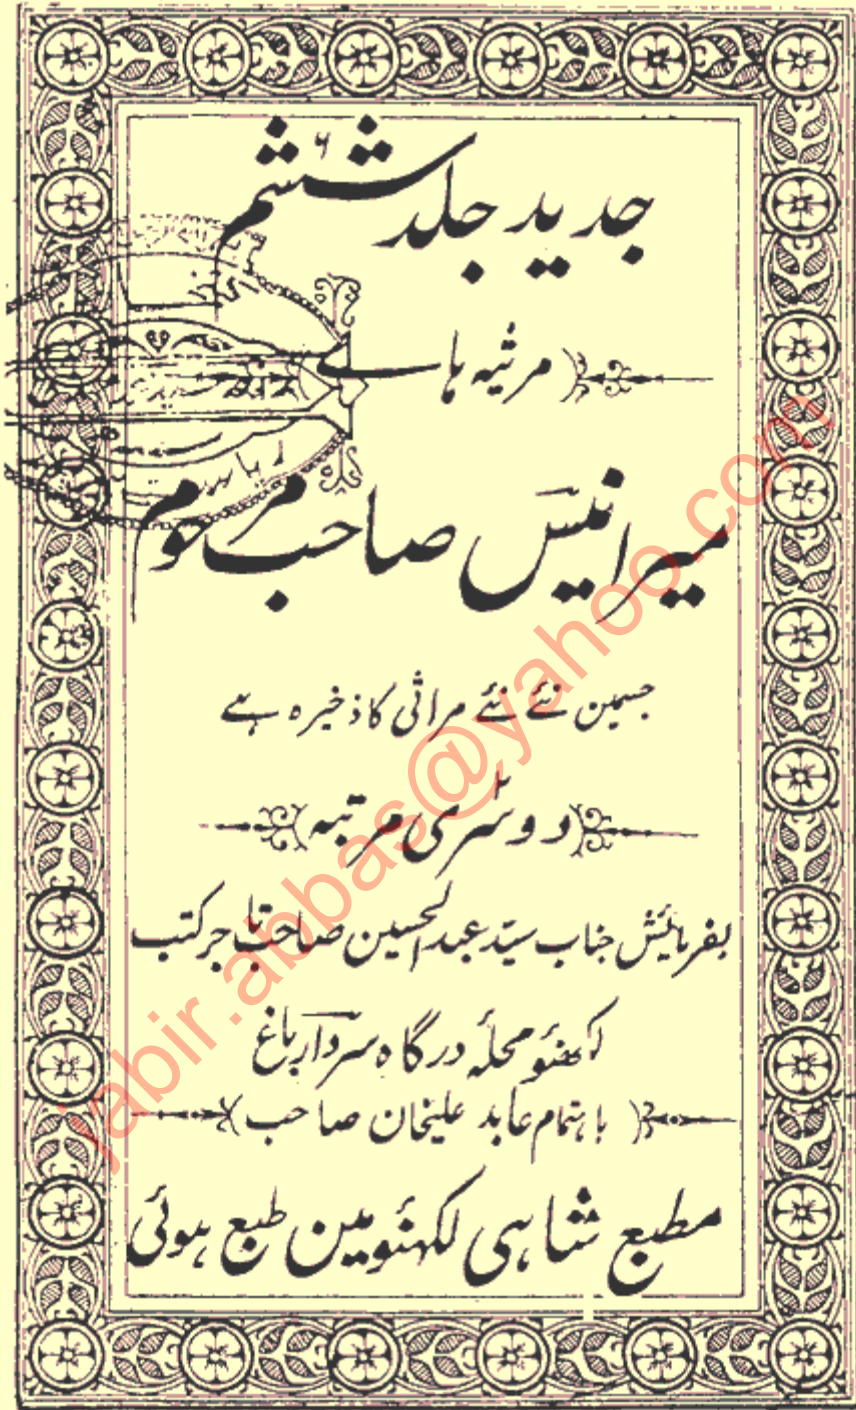 جدید جلد ششم ۶
مرثیہ ہاے
میر انیسؔ صاحب مرحوم
جسمین نئے نئے مراثی کا ذخیرہ ہے
دوسری مرتبہ ۲
بفرمائیش جناب سیّد عبدالحسین صاحب تاجر کتب
لکھنؤ محلہٴ درگاہ سردار باغ
باہتمام عابد علیخان صاحب
مطبع شاہی لکہنؤ مین طبع ہوئی
jabir.abbas@yahoo.com